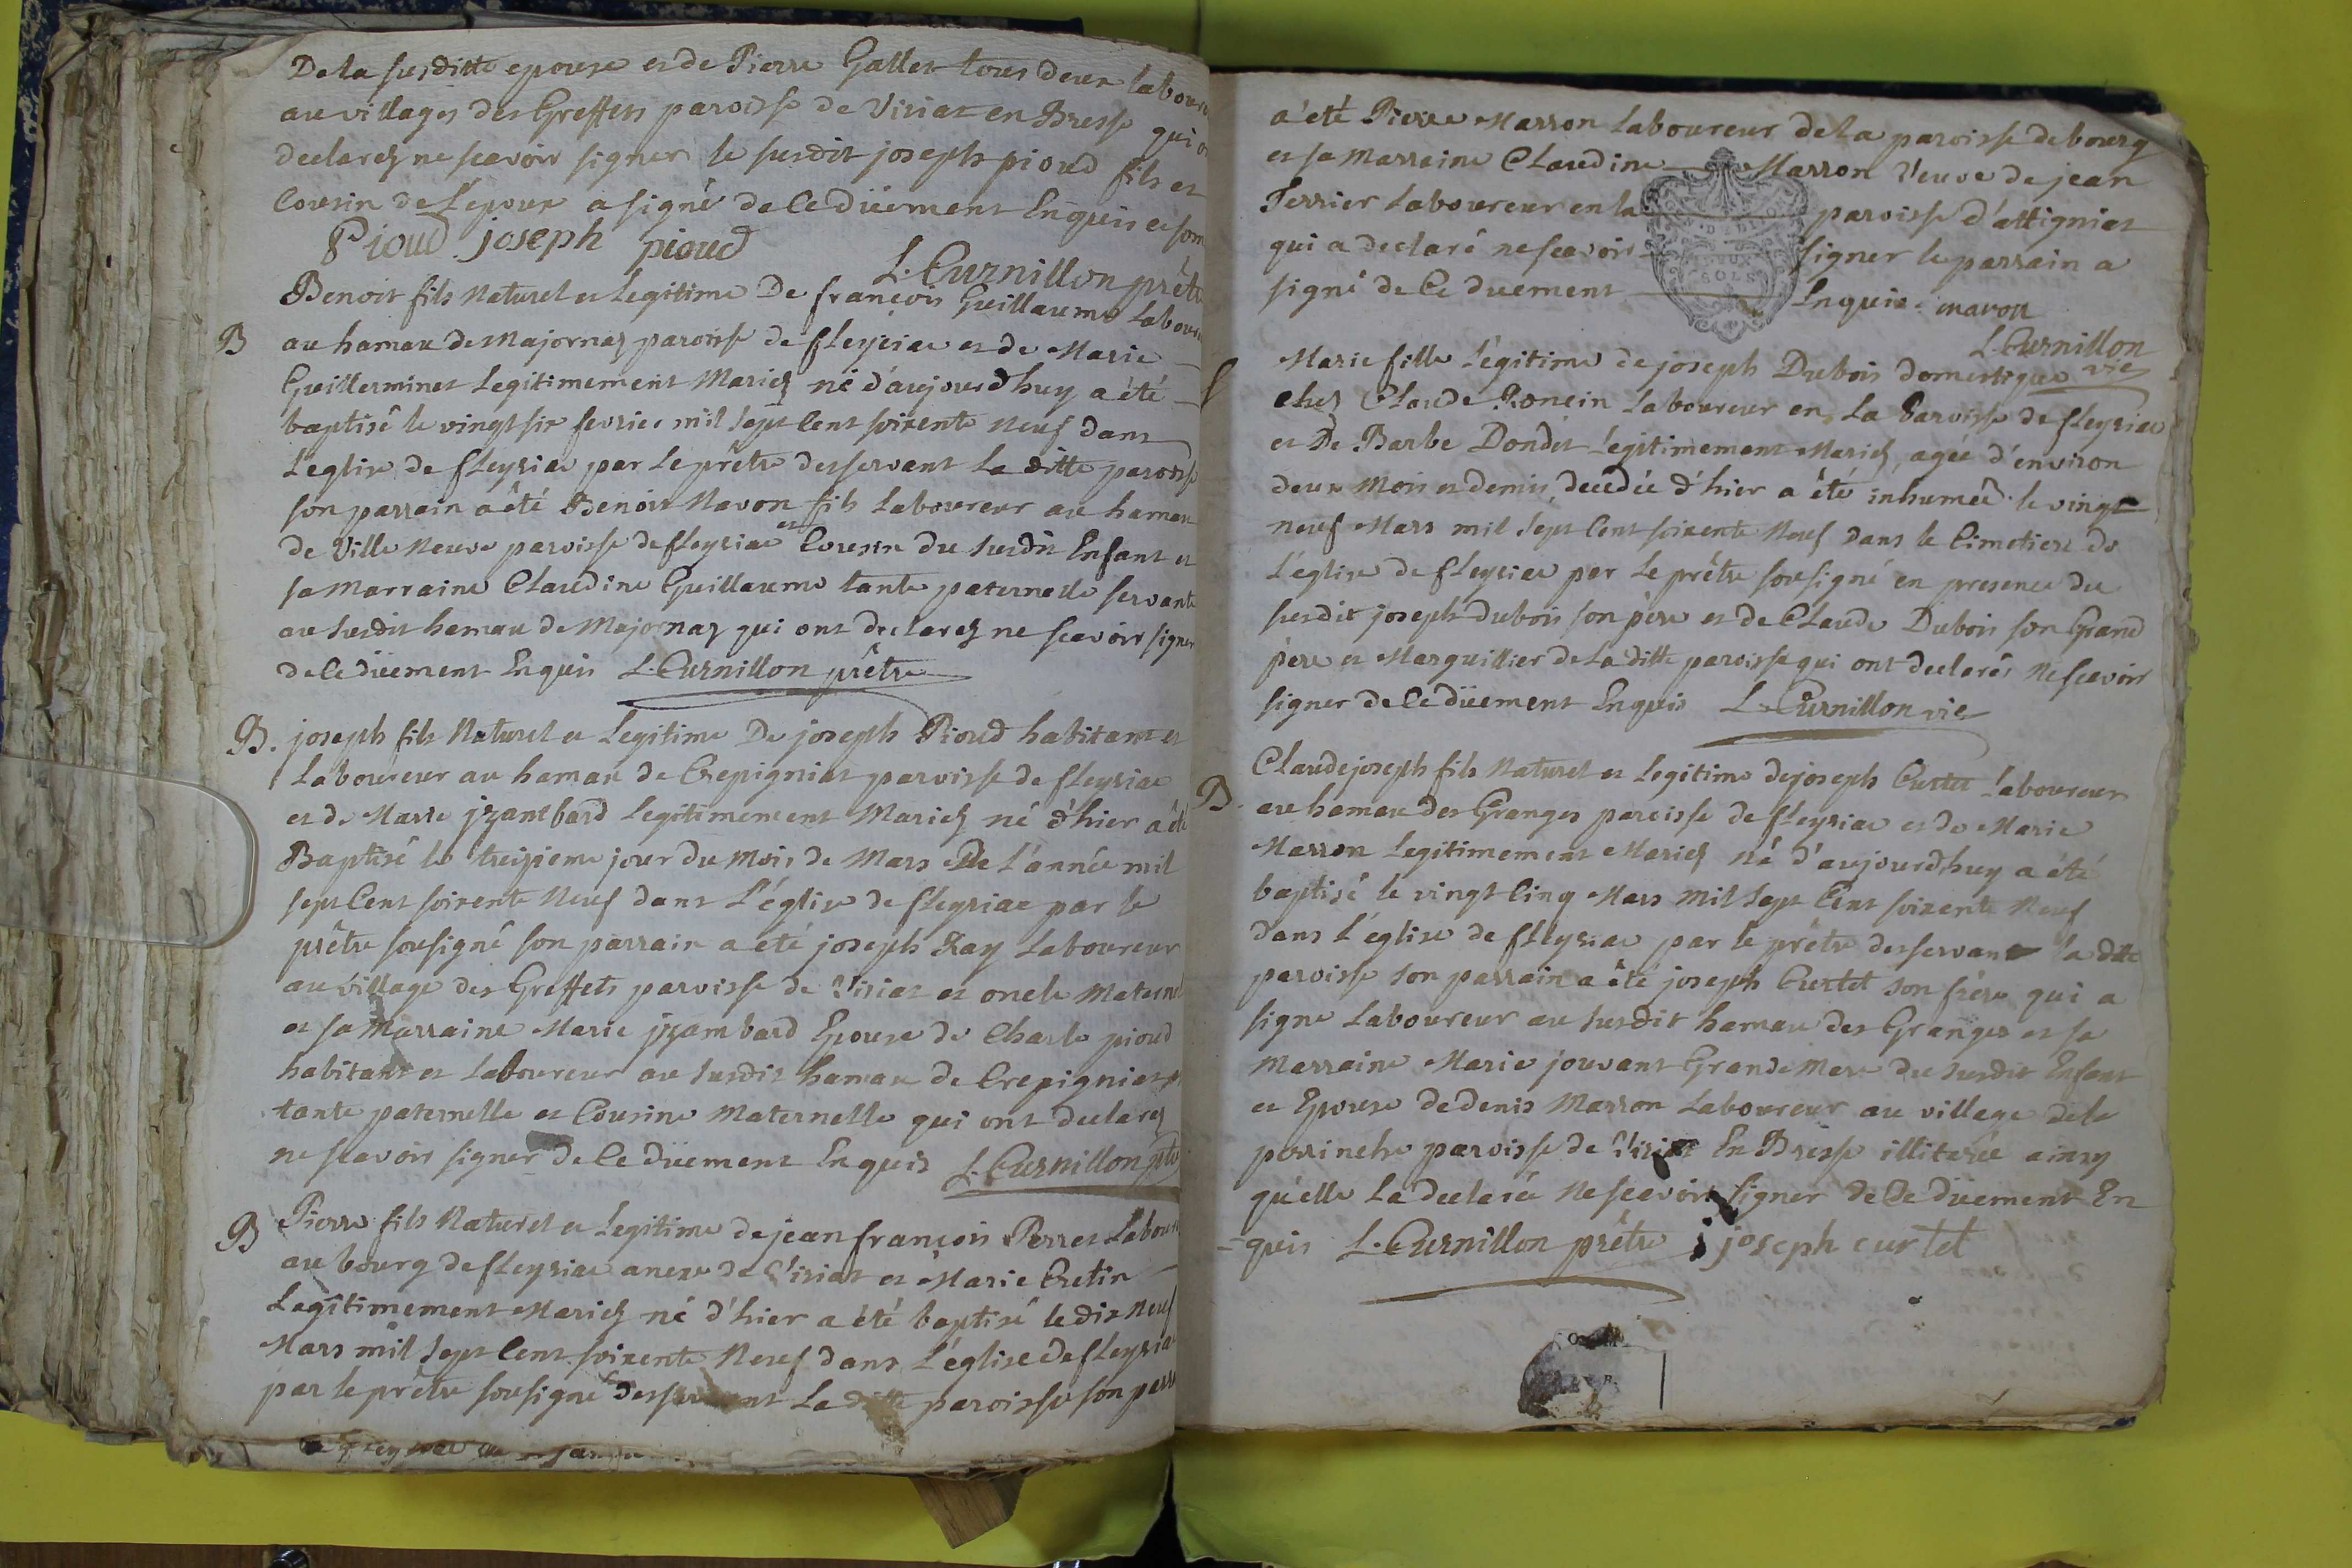 De la susditte epouse et de Pierre Gallet tous deux labour
au villages des Greffets paroisse de Viriat en Bresse qui o
declarez ne scavoir signer le susdit joseph pioud fils et
Cousin de l'epoux a signé de Ce düement Enquis et som
Pioud joseph pioud
L. Curnillon prêtr
Benoit fils Naturel et Legitime De françois Guillaume Labour
B au hamau de Majornaz paroisse de fleyriae et de Marie
Guillerminet Legitimement Mariez né d'aujourd'huy a été
baptisé le vingt six fevrier mil sept Cent soixente Neuf dans
L'eglise de fleyriae par Le prêtre desservant La ditte paroisse
son parrain a été Benoit Navon fils Laboureur au hamau
de Ville Neuve paroisse de fleyriae et Cousin du susdit Enfant et
sa Marraine Claudine Guillaume tante paternelle servante
au susdit hamau de Majornaz qui ont declarez ne scavoir signer
de Ce düement Enquis L. Curnillon prêtre
B. joseph fils Naturel et Legitime De joseph Pioud habitant et
Laboureur au hamau de Crepigniat paroisse de fleyriae
et de Marie jzambard Legitimement Mariez né d'hier a été
Baptisé le treizieme jour du Mois de Mars De l'année mil
sept Cent soixente Neuf dans L'église de fleyriae par le
prêtre sousigné son parrain a été joseph Ray Laboureur
au village des Greffets paroisse de Viriat et oncle Maternel
et sa Marraine Marie jzambard Epouse de Charle pioud
habitant et Laboureur au susdit hamau de Crepigniat
tante paternelle et Cousine Maternelle qui ont declarez
ne scavoir signer de Ce düement Enquis L. Curnillon ptre
B Pierre fils Naturel et Legitime de jean françois Perret Labour
au bourg de fleyriae anexe de Viriat et Marie Cretin
Legitimement Mariez né d'hier a été baptisé le dix Neuf
Mars mil Sept Cent soixente Neuf dans L'église de fleyria
par le prêtre sousigné desservant La ditte paroisse son parr
a été Pierre Marron Laboureur de La paroisse de bourg
et sa Marraine Claudine Marron Veuve de jean
Terrier Laboureur en la paroisse d'attigniat
qui a declaré ne scavoir signer le parrain a
signé de Ce duement Enquis. maron
L. Curnillon
vic
Marie fille Légitime de joseph Dubois domestique
chez Claude Roncin Laboureur en La Paroisse de fleyriae
et De Barbe Dondet Legitimement Mariez, agée d'environ
deux Mois et demis, decedée d'hier a été inhumée le vingt
neuf Mars mil Sept Cent soixente Neuf dans le Cimetiere de
L'église de fleyriae par Le prêtre sousigné en presence du
susdit joseph Dubois son père et de Claude Dubois son Grand
père et Marguillier de La ditte paroisse qui ont declarés Ne scavoir
signer de Ce düement Enquis L. Curnillon vic
Claude joseph fils Naturel et Legitime de joseph Curtet Laboureur
B. au hamau des Granges paroisse de fleyriae et de Marie
Marron Legitimement Mariez né d'aujourdhuy a été
baptisé le vingt Cinq Mars mil Sept Cent soixente Neuf
dans L'église de fleyriae par le prêtre desservant la ditte
paroisse son parrain a été joseph Curtet son frère qui a
signe Laboureur au susdit hamau des Granges et sa
Marraine Marie jouvant Grande Mere du susdit Enfant
et Epouse de denis Marron Laboureur au village de la
perrinche paroisse de Viriat En Bresse illiterée ainsy
qu'elle La declaréé Ne scavoir signer de Ce düement En
-quis L. Curnillon prêtre joseph curtet